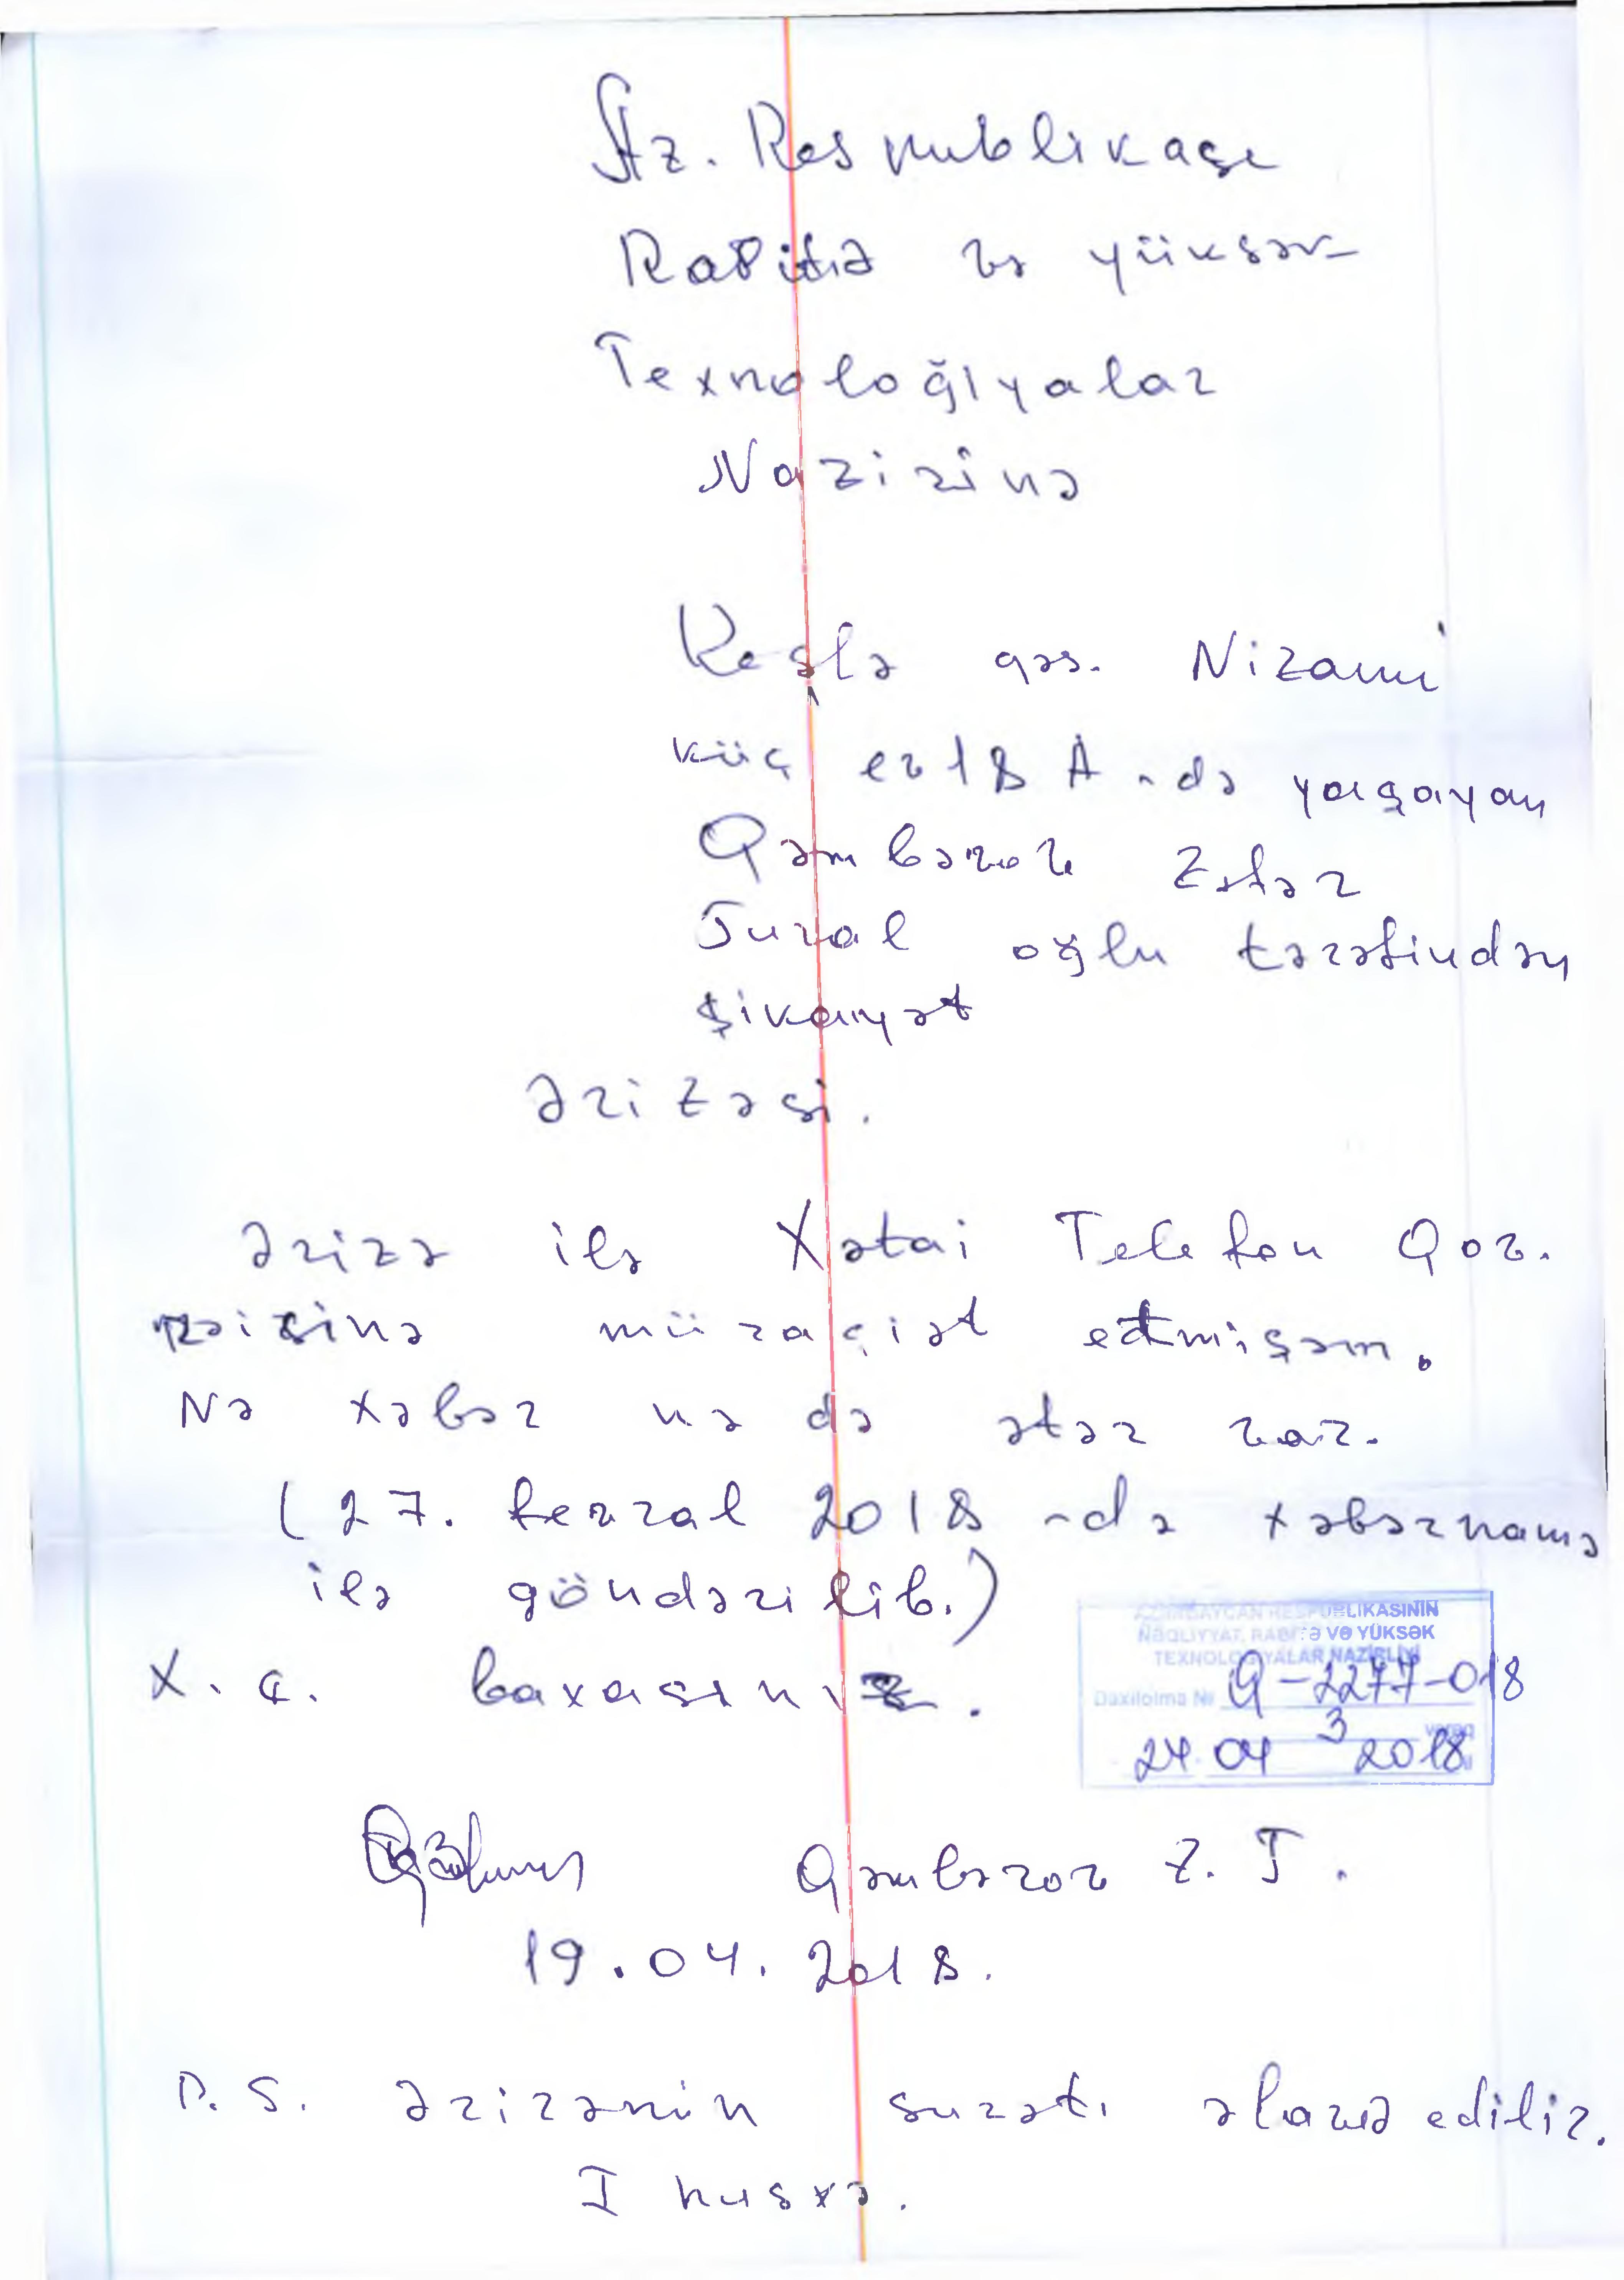 Az. Respublikası
Rabitə və yüksək
Texnoloğiyalar
Nazirinə
Keşlə qəs. Nizami
küç ev 18 A-da yaşayan
Qəmbərov Zəfər
Tural oğlu tərəfindən
şikayət
ərizəsi.
Ərizə ilə Xətai Telefon Qov.
rəisinə müraciət etmişəm.
Nə xəbər nə də ətər var.
(27. fevral 2018-də xəbərnamə
ilə göndərilib.)
AZƏRBAYCAN RESPUBLIKASININ
NƏQLIYYAT, RABITƏ VƏ YÜKSƏK
TEXNOLOGIYALAR NAZIRLIYI
X. e. baxasınız.
Daxilolma № Q-2277-018
3 vərəq
24 04 2018
Qəmbərov Z. T.
19.04.2018.
P.S. Ərizənin surəti əlavə edilir.
I nusxə.